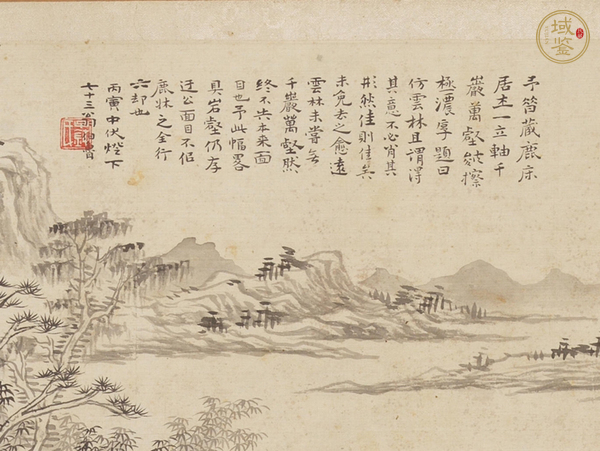 予旧藏鹿床
居士一立軸千
巖萬壑皴擦
極濃厚題曰
仿雲林且謂得
其意不必肖其
形然佳則佳矣
未免去之愈遠
雲林未嘗無
千巖萬壑然
終不失本來面
目也予此幅畧
具岩壑仍存
迂公面目不似
鹿牀之全行
六却也
丙寅中伏燈下
七十三翁
域鉴